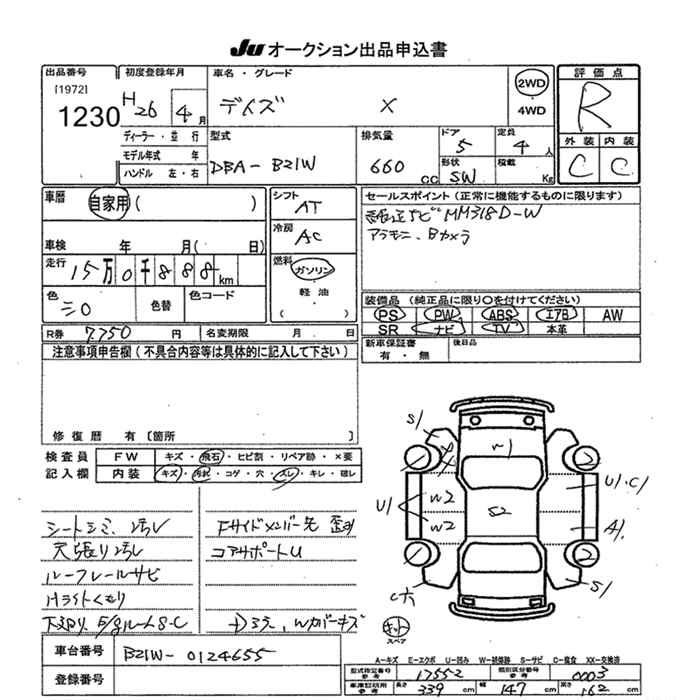 Ju オークション出品申込書
出品番号 初度登録年月 車名・グレード 評価点
[1972]
1230 H26 4月 デイズ X 2WD・4WD R
ディーラー・並行 型式 排気量 ドア 定員 外装 内装
モデル年式 年 5 4人 C C
ハンドル 左・右 DBA-B21W 660cc 形状 SW 積載 Kg
車歴 自家用( ) シフト AT セールスポイント(正常に機能するものに限ります)
純正ナビMM318D-W
冷房 AC アラモニ、Bカメラ
車検 年 月( 日)
走行 15万0千888km 燃料 ガソリン・軽油
( )
色 色替 色コード 装備品(純正品に限り○を付けてください)
PS PW ABS エアB AW
R券 7,750円 名変期限 月 日 SR ナビ TV 本革
注意事項申告欄(不具合内容等は具体的に記入して下さい) 新車保証書 有・無 後日品
修復歴 有〔箇所 〕
検査員 FW キズ・飛石・ヒビ割・リペア跡・×要
記入欄 内装 キズ・汚れ・コゲ・穴・スレ・キレ・破レ
シートシミ、汚レ Fサイドメンバー先 歪ミ
天張リ汚レ コアサポートU
ルーフレールサビ
Hライトくもり
下廻り、E/gルームS・C →3ヶ、Wカバーキズ
S1 W1 W2 W2 U1 S2 U1・C1 A1 S1 C穴
キット
スペア
車台番号 B21W-0124655
登録番号
A-キズ E-エクボ U-凹み W-波修跡 S-サビ C-腐食 XX-交換済
型式指定番号 参考 17552 類別区分番号 参考 0003
車庫証明用 参考 長さ 339cm 幅 147cm 高さ 162cm